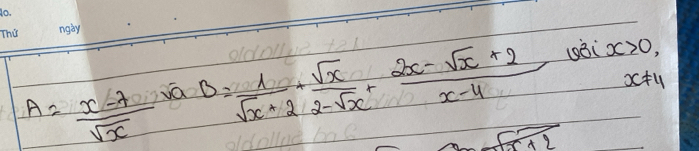 No.
Thứ ngày
A = \frac{x-7}{\sqrt{x}} và B = \frac{1}{\sqrt{x}+2} + \frac{\sqrt{x}}{2-\sqrt{x}} + \frac{2x-\sqrt{x}+2}{x-4} với x>0,
x≠4